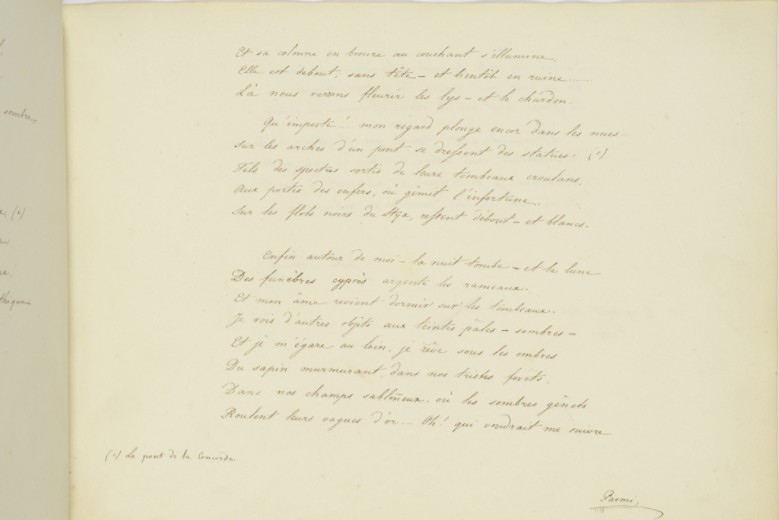 sombre,
Et sa colonne en bronze au couchant s'illumine,
Elle est debout, sans tête – et bientôt en ruine ......
Là nous verrons fleurir les lys – et le chardon.
Qu'importe ! mon regard plonge encor dans les nues.
Sur les arches d'un pont se dressent des statues. (1)
Tels des spectres sortis de leurs tombeaux croulans,
Aux portes des enfers, où gémit l'infortune,
Sur les flots noirs du Styx, restent debout – et blancs.
Enfin autour de moi – la nuit tombe – et la lune
Des funèbres cyprès argente les rameaux.
Et mon âme revient dormir sur les tombeaux.
Je vois d'autres objets aux teintes pâles – sombres –
Et je m'égare au loin, je rêve sous les ombres
Du sapin murmurant, dans nos tristes forêts.
Dans nos champs sablonneux, où les sombres genêts
Roulent leurs vagues d'or ... Oh ! qui voudrait me suivre
(1) Le pont de la Concorde
Parmi,